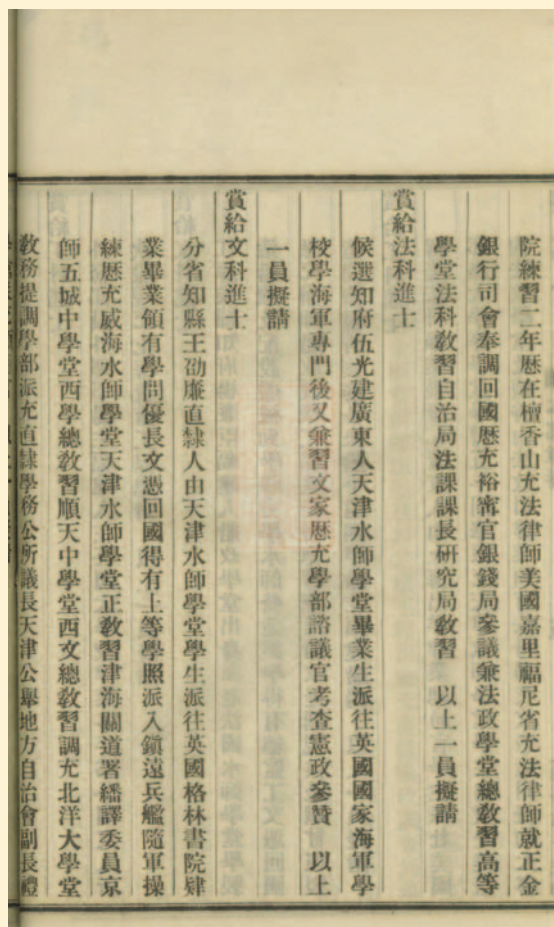 院練習二年歷在檀香山充法律師美國嘉里福尼省充法律師就正金
銀行司會奉調回國歷充裕甯官銀錢局參議兼法政學堂總敎習高等
學堂法科敎習自治局法課課長硏究局敎習　以上一員擬請
賞給法科進士
候選知府伍光建廣東人天津水師學堂畢業生派往英國國家海軍學
校學海軍專門後又兼習文家歷充學部諮議官考查憲政參贊　以上
一員擬請
賞給文科進士
分省知縣王劭廉直隸人由天津水師學堂學生派往英國格林書院肄
業畢業領有學問優長文憑回國得有上等學照派入鎭遠兵艦隨軍操
練歷充威海水師學堂天津水師學堂正敎習津海關道署繙譯委員京
師五城中學堂西學總敎習順天中學堂西文總敎習調充北洋大學堂
敎務提調學部派充直隸學務公所議長天津公舉地方自治會副長禮